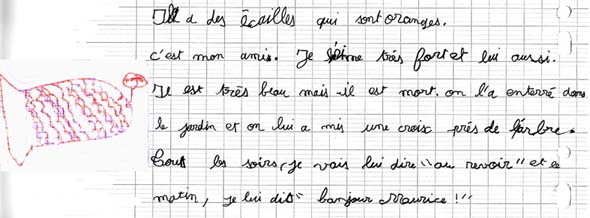 Il a des écailles qui sont oranges.
c'est mon amis. Je l'aime trés fort et lui aussi.
Il est trés beau mais il est mort. on l'a enterré dans
le jardin et on lui a mis une croix prés de l'arbre.
Tout les soirs, je vais lui dire "au revoir" et le
matin, je lui dit "bonjour Maurice !"